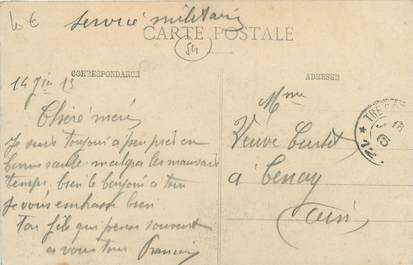 10 €
service militaire
CARTE POSTALE
54
CORRESPONDANCE
ADRESSE
14 Juin 15
Chère mère
Je suis toujour à peu près en
bonne santé malgré les mauvais
temps, bien le bonjour à tous
Je vous embrasse bien
Ton fils qui pense souvent
a vous tous Francis
Mme
Veuve
à Tenay
Ain
TRESOR